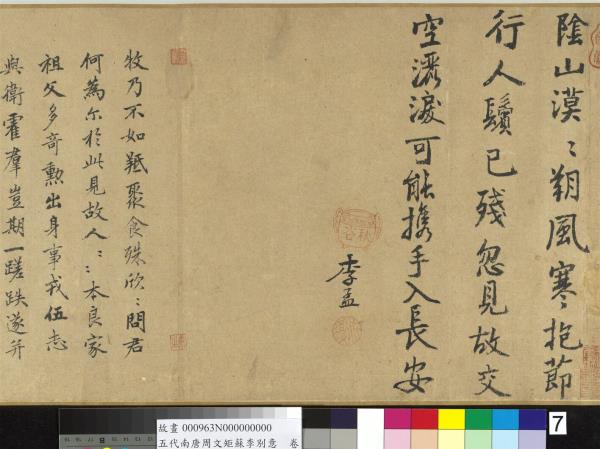 陰山漠〻朔風寒抱節
行人鬢已殘忽見故交
空灑淚可能攜手入長安
李孟
牧乃不如羝聚食殊欣〻問君
何為尔於此見故人〻〻本良家
祖父多奇勳出身事我伍志
與衛霍羣豈期一蹉跌遂并
7
故畫 000963N000000000
五代南唐周文矩蘇李別意 卷